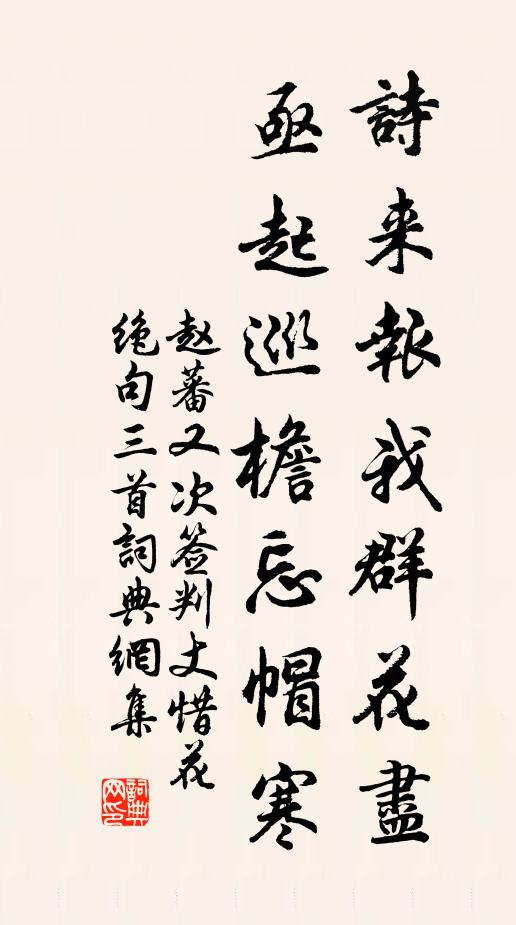 詩来報我群花盡
亟起巡檐忘帽寒
赵蕃又次签判丈惜花
絶句三首詞典網集
詞典网印